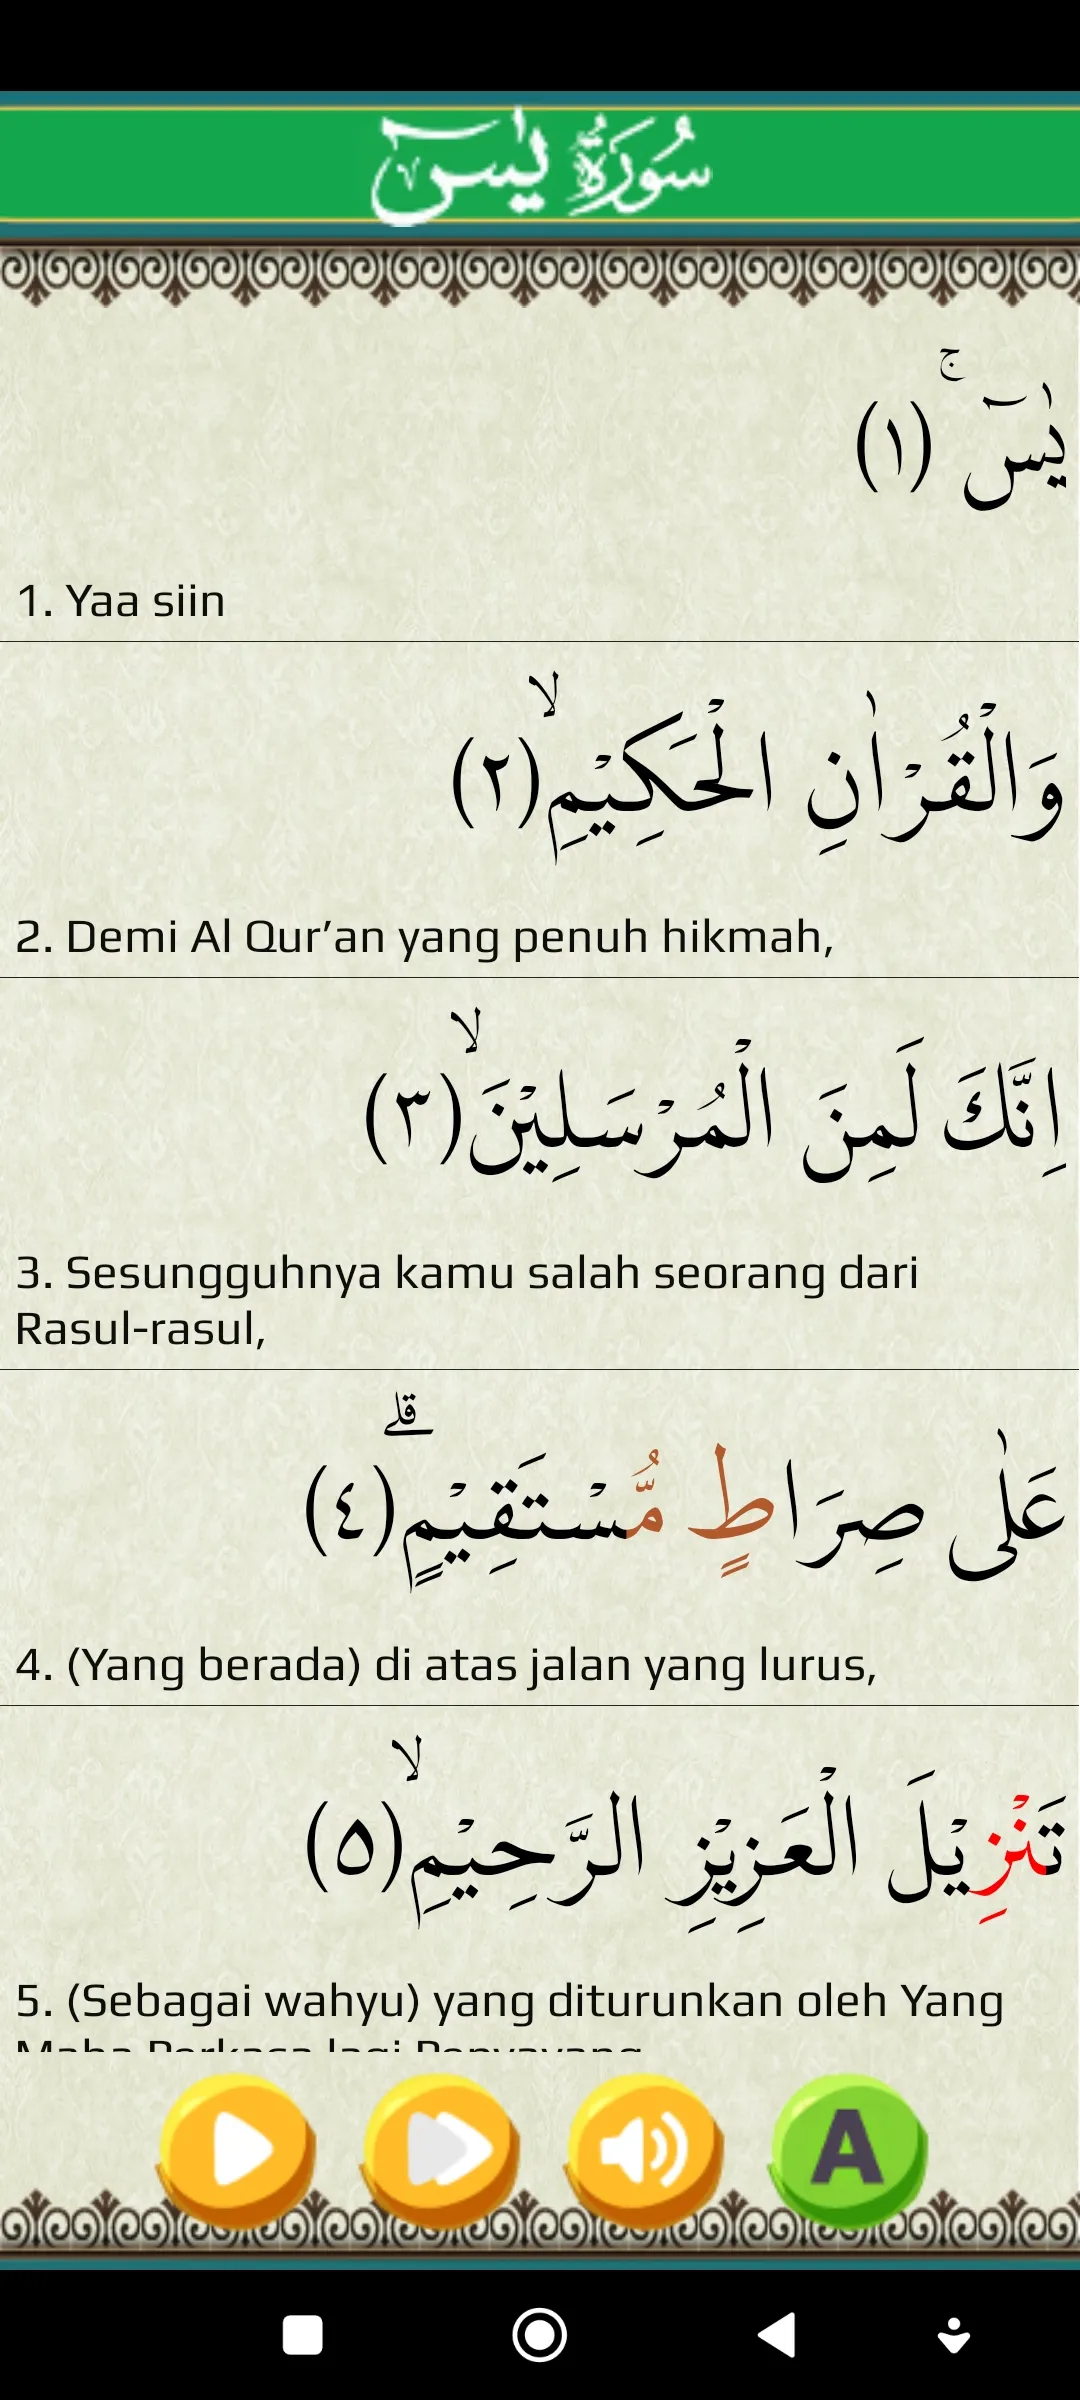 سُورَةُ يٰسٓ
يٰسٓ ۚ (١)
1. Yaa siin
وَالْقُرْاٰنِ الْحَكِيْمِۙ (٢)
2. Demi Al Qur’an yang penuh hikmah,
اِنَّكَ لَمِنَ الْمُرْسَلِيْنَۙ (٣)
3. Sesungguhnya kamu salah seorang dari
Rasul-rasul,
عَلٰى صِرَاطٍ مُّسْتَقِيْمٍۗ (٤)
4. (Yang berada) di atas jalan yang lurus,
تَنْزِيْلَ الْعَزِيْزِ الرَّحِيْمِۙ (٥)
5. (Sebagai wahyu) yang diturunkan oleh Yang
Maha Perkasa lagi Penyayang
A